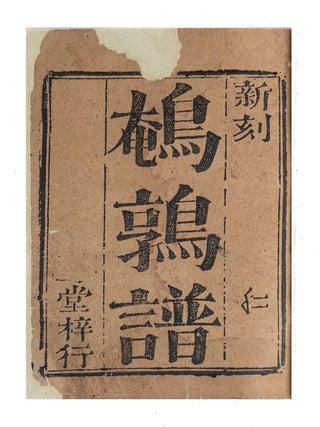 新刻
鵪鶉譜
堂梓行